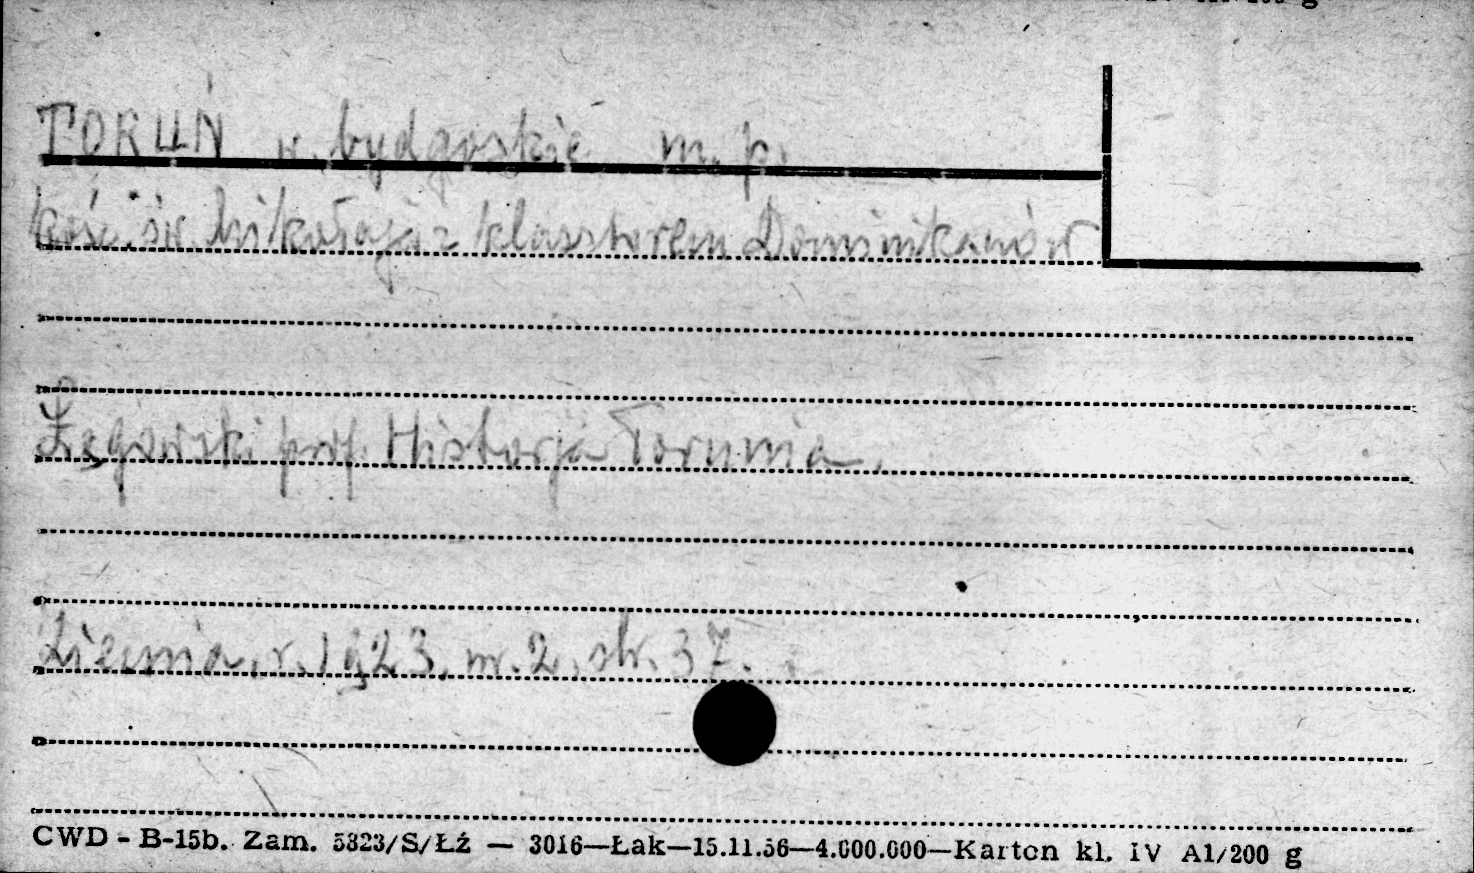 TORUŃ w. bydgoskie m. p.
kość. św. Mikołaja z klasztorem Dominikanów
prof. Historja Torunia.
Ziemia, r. 1923, nr. 2, str. 37.
CWD - B-15b. Zam. 5323/S/ŁŹ — 3016—Łak—15.11.56—4.000.000—Karton kl. IV A1/200 g